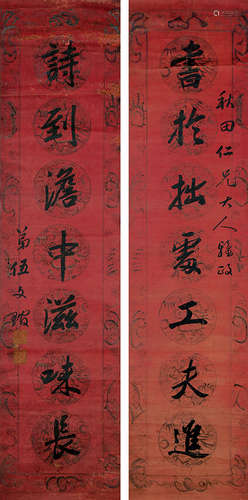 秋田仁兄大人雅政
書於拙處工夫進
詩到澹中滋味長
弟伍文